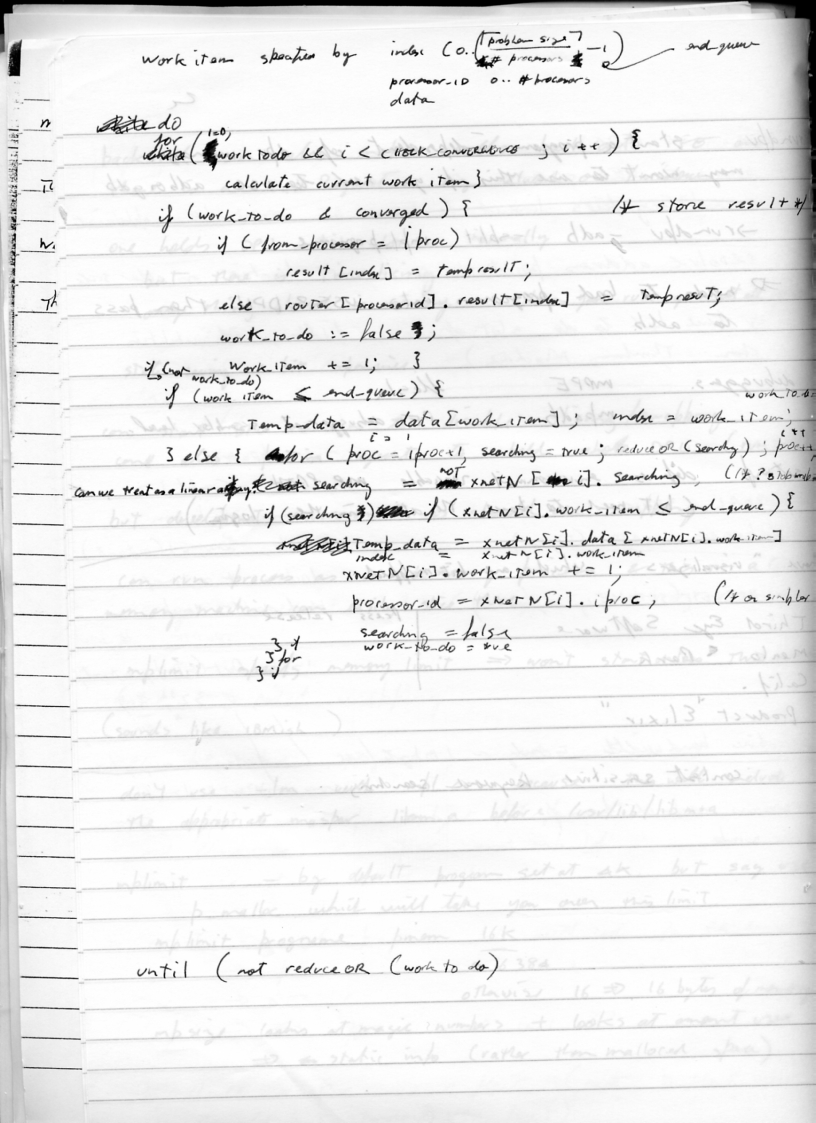 work item specified by index (0..⌈problem size / # processors⌉ - 1) end_queue
processor_ID 0.. # processors
data
do
for (i=0; work todo && i < check convergence ; i++) {
calculate current work item }
if (work_to_do & converged) { /* store result */
if (from_processor = iproc)
result [index] = temp result;
else router [processorid]. result [index] = temp result;
work_to_do := false ;
work_item += 1; }
if (not work_to_do)
if (work item ≤ end_queue) { work_to_do
Temp_data = data [work_item] ; index = work_item;
} else { for ( proc = iproc+1, i = 1 searching = true ; reduceOR (searching) ; proc++, i++
can we treat as a linear array? searching = not xnetN [i]. searching, (/*
if (searching) if (xnetN[i]. work_item ≤ end_queue) {
Temp_data = xnetN[i]. data [xnetN[i]. work_item]
index = xnetN[i]. work_item
xnetN[i]. work_item += 1;
processor_id = xnetN[i]. iproc; (/* or similar
searching = false
work_to_do = true
} if
} for
} if
until (not reduceOR (work to do)